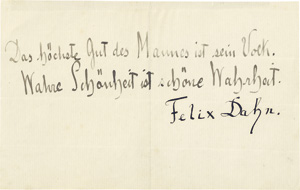 Das höchste Gut des Mannes ist sein Volk.
Wahre Schönheit ist schöne Wahrheit.
Felix Dahn.